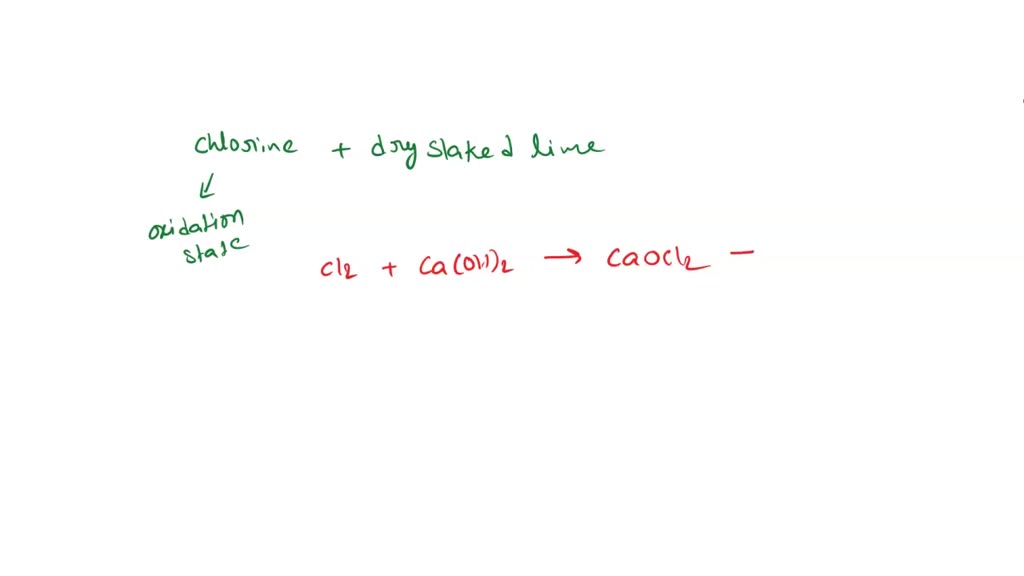 chlorine + dry slaked lime
↙
oxidation
state
Cl2 + Ca(OH)2 → CaOCl2 —